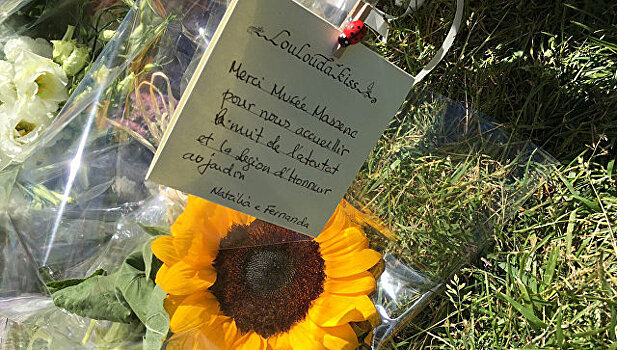 LouloudaKiss
Merci Musée Massena
pour nous accueillir
la nuit de l'atentat
et la legion d'Honneur
au jardin
Natália e Fernanda